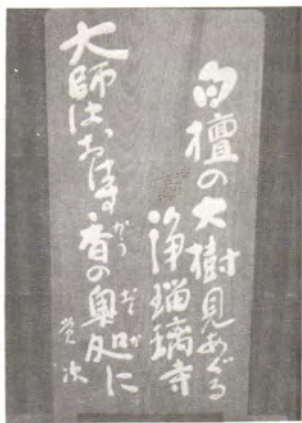 白檀の大樹見あぐる
浄瑠璃寺
大師はおはす香の奥処に
かう